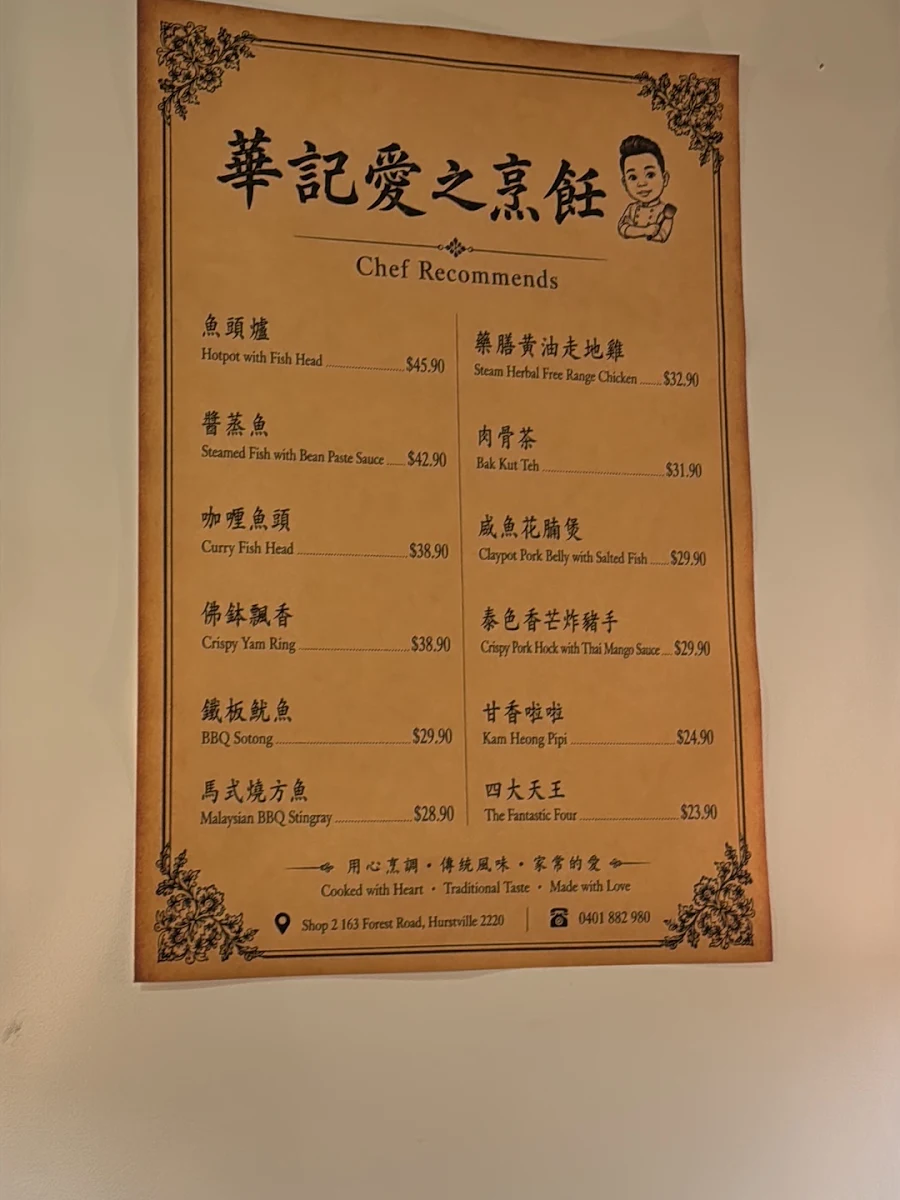 華記愛之烹飪
Chef Recommends
魚頭爐
Hotpot with Fish Head $45.90
醬蒸魚
Steamed Fish with Bean Paste Sauce $42.90
咖喱魚頭
Curry Fish Head $38.90
佛鉢飄香
Crispy Yam Ring $38.90
鐵板魷魚
BBQ Sotong $29.90
馬式燒方魚
Malaysian BBQ Stingray $28.90
藥膳黃油走地雞
Steam Herbal Free Range Chicken $32.90
肉骨茶
Bak Kut Teh $31.90
咸魚花腩煲
Claypot Pork Belly with Salted Fish $29.90
泰色香芒炸豬手
Crispy Pork Hock with Thai Mango Sauce $29.90
甘香啦啦
Kam Heong Pipi $24.90
四大天王
The Fantastic Four $23.90
用心烹調・傳統風味・家常的愛
Cooked with Heart • Traditional Taste • Made with Love
Shop 2 163 Forest Road, Hurstville 2220 | 0401 882 980